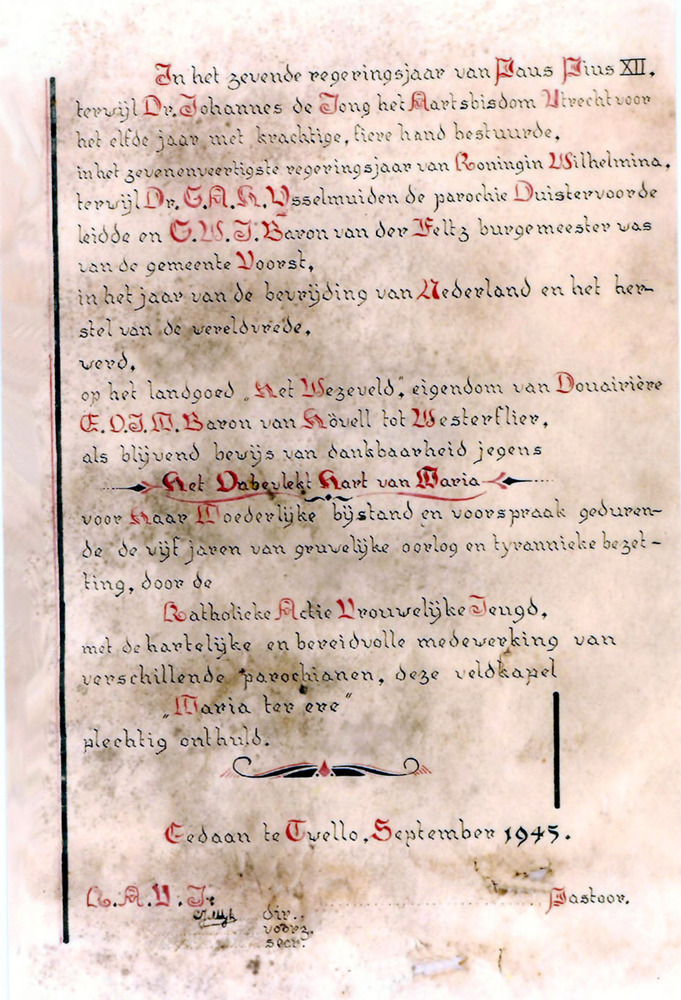 In het zevende regeringsjaar van Paus Pius XII,
terwijl Dr. Johannes de Jong het Aartsbisdom Utrecht voor
het elfde jaar met krachtige, fiere hand bestuurde,
in het zevenenveertigste regeringsjaar van Koningin Wilhelmina,
terwijl Dr. G.A.H. Ysselmuiden de parochie Duistervoorde
leidde en G.W.J. Baron van der Feltz burgemeester was
van de gemeente Voorst,
in het jaar van de bevrijding van Nederland en het her-
stel van de wereldvrede,
werd,
op het landgoed „Het Wezeveld", eigendom van Douairière
E.O.J.M. Baron van Hövell tot Westerflier,
als blijvend bewijs van dankbaarheid jegens
Het Onbevlekt Hart van Maria
voor Haar Moederlijke bijstand en voorspraak geduren-
de de vijf jaren van gruwelijke oorlog en tyrannieke bezet-
ting, door de
Katholieke Actie Vrouwelijke Jeugd,
met de hartelijke en bereidvolle medewerking van
verschillende parochianen, deze veldkapel
„Maria ter ere"
plechtig onthuld.
Gedaan te Twello, September 1945.
K.A.V.J: Pastoor.
dir.
voorz.
secr.